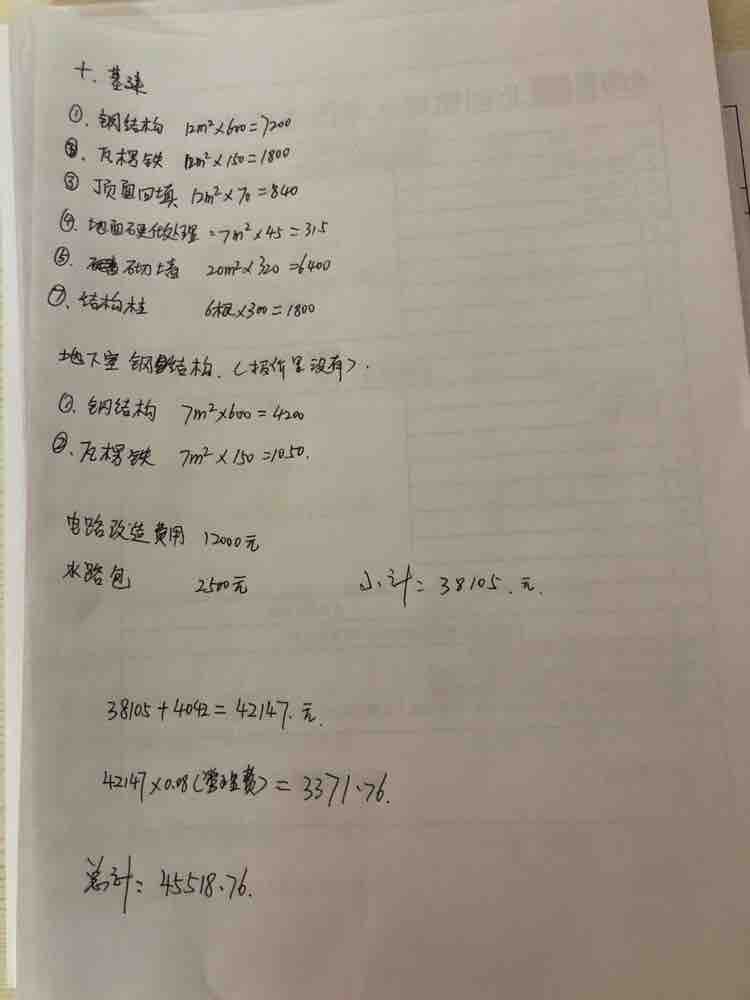 十、基建
①、钢结构 12m²×600=7200
②、瓦楞铁 12m²×150=1800
③、顶面回填 12m²×70=840
④、地面硬化处理=7m²×45=315
⑤、砌墙 20m²×320=6400
⑦、结构柱 6根×300=1800
地下室钢结构、(报价里没有).
①、钢结构 7m²×600=4200
②、瓦楞铁 7m²×150=1050.
电路改造费用 12000元
水路包 2500元 小计=38105.元.
38105+4042=42147.元.
42147×0.08(管理费)=3371.76.
总计=45518.76.